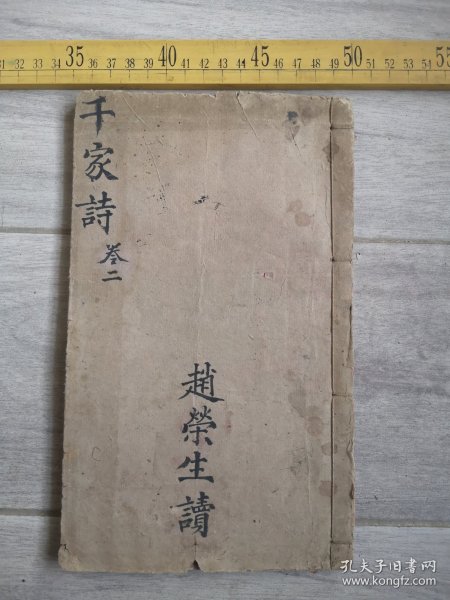 31 32 33 34 35 36 37 38 39 40 41 42 43 44 45 46 47 48 49 50 51 52 53 54 55
千家詩
卷二
趙榮生讀
孔夫子旧书网
www.kongfz.com